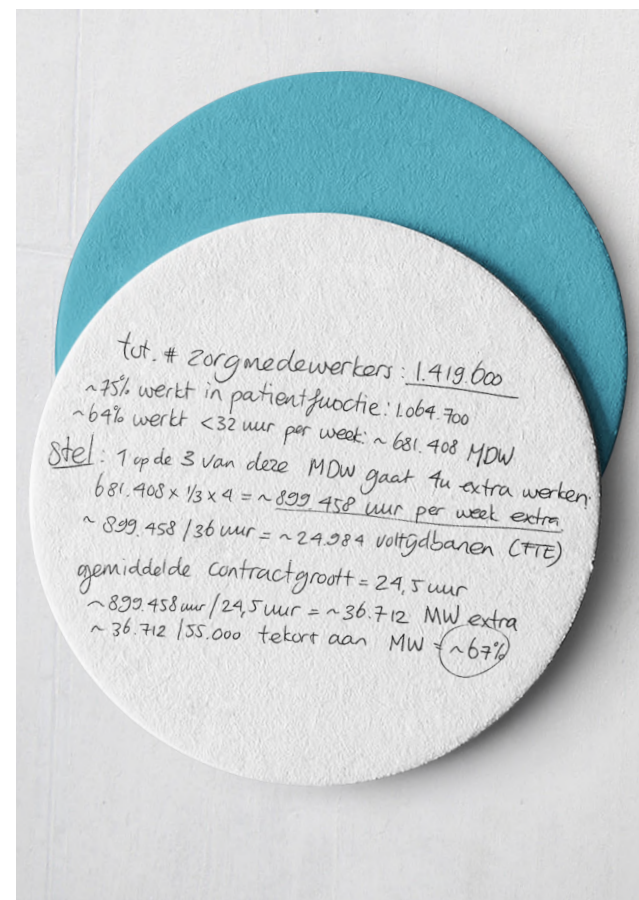 tot. # zorgmedewerkers: 1.419.600
~75% werkt in patientfunctie: 1.064.700
~64% werkt <32 uur per week: ~ 681.408 MDW
Stel: 1 op de 3 van deze MDW gaat 4u extra werken:
681.408 x 1/3 x 4 = ~ 899.458 uur per week extra
~ 899.458 / 36 uur = ~ 24.984 voltijdbanen (FTE)
gemiddelde contractgroott = 24,5 uur
~ 899.458 uur / 24,5 uur = ~ 36.712 MW extra
~ 36.712 / 55.000 tekort aan MW = ~67%